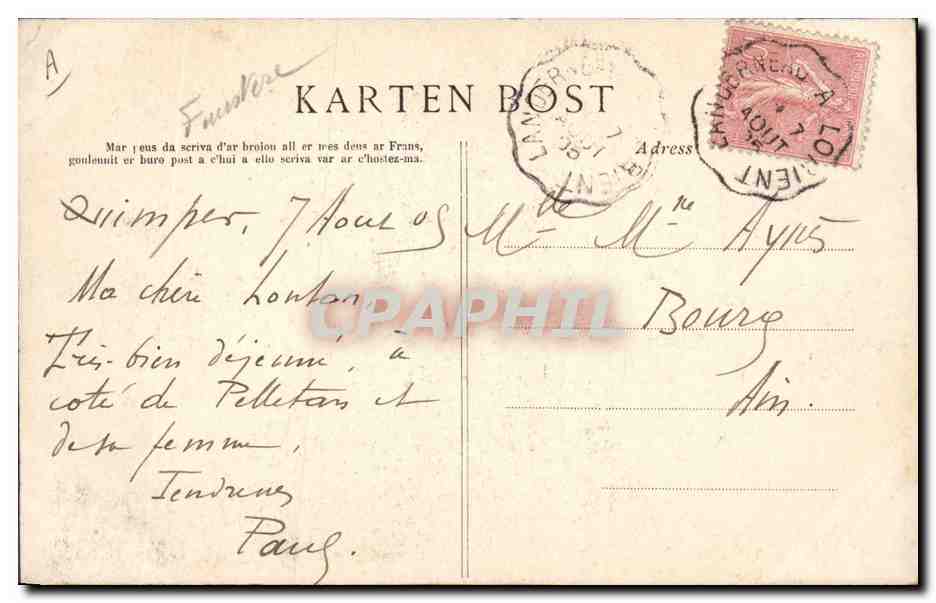 A
KARTEN BOST
Mar peus da scriva d'ar broiou all er mes deus ar Frans,
goulennit er buro post a c'hui a ello scriva var ar c'hostez-ma.
Adress
LANDERNEAU A LORIENT
7
AOUT
05
LANDERNEAU A LORIENT
7
AOUT
05
Quimper, 7 Aout 05
Ma chère
Très-bien déjeuné, à
coté de Pelletan et
de sa femme.
Tendresses
Paul.
Mlle Mne Ayrès
Bourg
Ain.
CPAPHIL